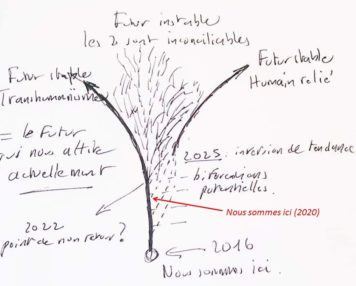 Futur instable
les 2 sont inconciliables
Futur stable
Transhumanisme
Futur stable
Humain relié
= le futur
qui nous attire
actuellement
2025 inversion de tendance
- bifurcations
potentielles.
Nous sommes ici (2020)
2022
point de non retour ?
2016
Nous sommes ici.